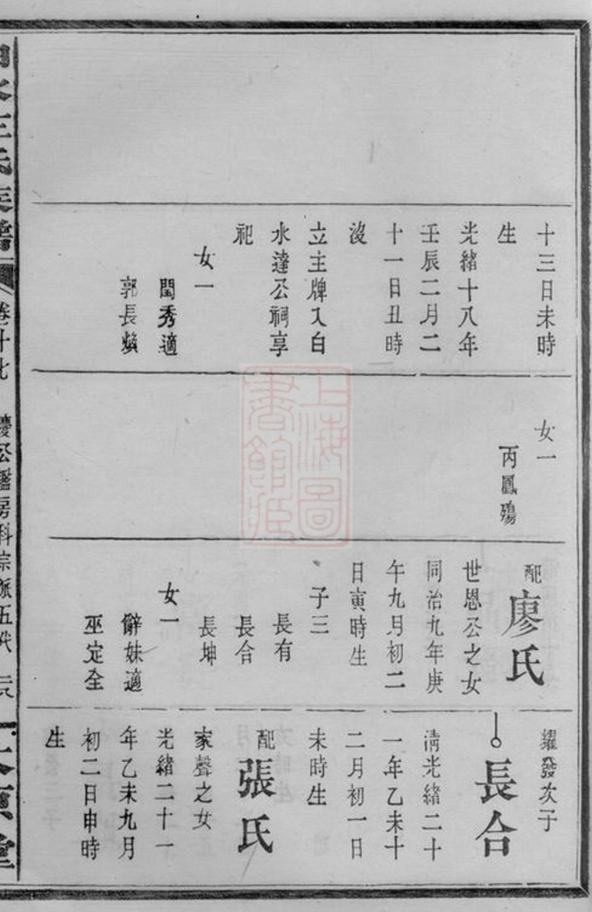 十三日未時
生
光緒十八年
壬辰二月二
十一日丑時
沒
立主牌入白
水達公祠享
祀
女一
閨秀適
郭長
女一
丙鳳殤
配廖氏
世恩公之女
同治九年庚
午九月初二
日寅時生
子三
長有
長合
長坤
女一
妹適
巫定全
耀發次子
長合
清光緒二十
一年乙未十
二月初一日
未時生
配張氏
家聲之女
光緒二十一
年乙未九月
初二日申時
生
王氏族譜
卷十七
公房科宗派五代
堂
上海圖書館藏